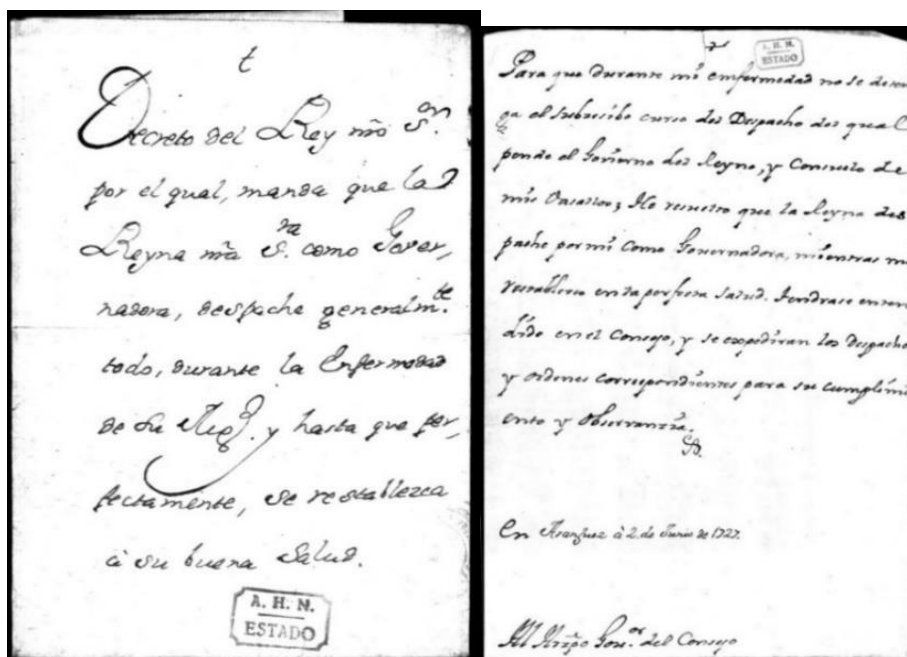 t
Decreto del Rey nr̃o S.or
por el qual, manda que la
Reyna nr̃a S.ra como Gover,,
nadora, despache generalm.te
todo, durante la Enfermedad
de su Mag.d y hasta que per,,
fectamente, se restablezca
â su buena Salud.
A. H. N.
ESTADO
A. H. N.
ESTADO
Para que durante mi enfermedad no se deten
ga el subcesibo curso del Despacho del qual
pende el Govierno del Reyno, y Consuelo de
mis Vasallos; He resuelto que la Reyna des
pache por mi como Governadora, mientras me
restablezco en la perfecta salud. Tendrase enten
dido en el Consejo, y se expediran los despacho
y ordenes correspondientes para su cumplimi
ento y observanzia.
En Aranjuez â 2 de Junio de 1727.
Al Obispo Gov.or del Consejo